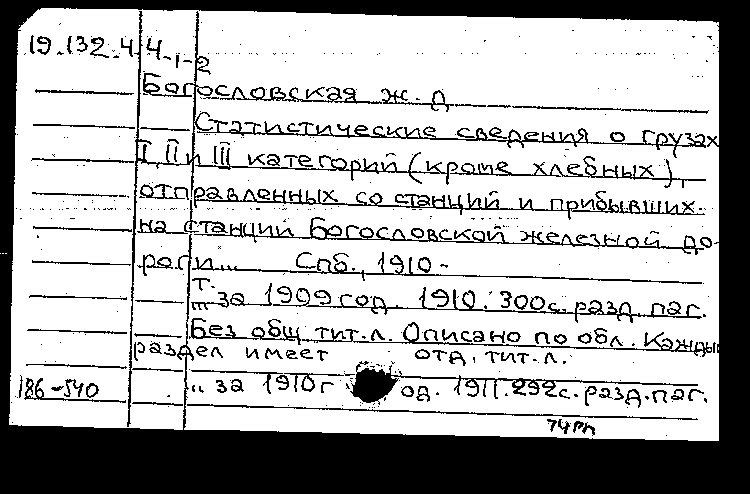 19.132.4.4-1-2
Богословская ж.д
Статистические сведения о грузах
I, II и III категорий (кроме хлебных),
отправленных со станций и прибывших
на станции Богословской железной до-
роги... Спб., 1910-
т.
... за 1909 год. 1910. 300с. разд. паг.
Без общ. тит.л. Описано по обл. Кажды
раздел имеет отд. тит.л.
186-540 „ за 1910г од. 1911. 292с. разд. паг.
74РП